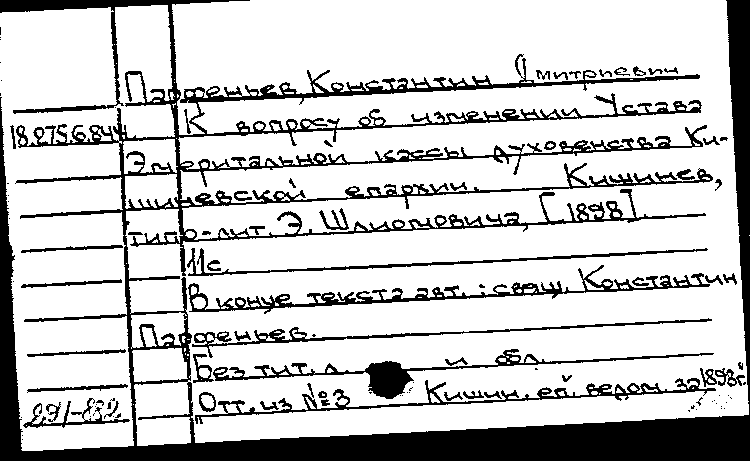 Парфеньев, Константин Дмитриевич
18.275.6.844. К вопросу об изменении Устава
Эмеритальной кассы духовенства Ки-
шиневской епархии. Кишинев,
типо-лит. Э. Шлиомовича, [1898].
11с.
В конце текста авт.: свящ. Константин
Парфеньев.
Без тит. л. и обл.
Отт. из №3 Кишин. еп. ведом. за 1898г.